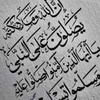 إن الله وملائكته
يصلون على النبي
يا أيها الذين آمنوا صلوا عليه
وسلموا تسليما